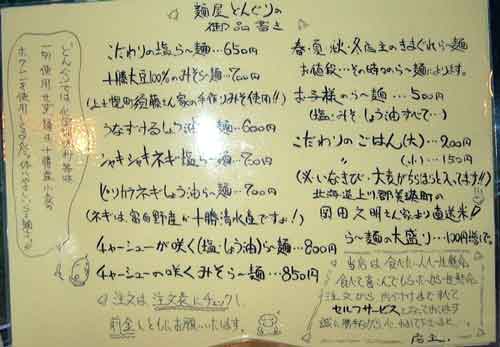 麺屋どんぐりの
御品書き
こだわりの塩ら〜麺…650円
十勝大豆100%のみそら〜麺…700円
(上士幌町須藤さん家の手作りみそ使用!!)
うなずけるしょう油ら〜麺…600円
シャキシャキネギ塩ら〜麺…700円
ピリカラネギしょう油ら〜麺…700円
(ネギは、富良野産か十勝清水産ですょ!)
チャーシューが咲く(塩・しょう油)ら〜麺…800円
チャーシューの咲くみそら〜麺…850円
注文は注文表にチェックし
前金とともにお願いいたします。
春・夏・秋・冬店主のきまぐれら〜麺
お値段…その時々のら〜麺によります。
お子様のら〜麺…500円
(塩・みそ・しょう油すべて…)
こだわりのごはん(大)…200円
〃(小)…150円
北海道上川郡美瑛町の
岡田久明さん家より直送米!
ら〜麺の大盛り…100円増し
どんぐりでは化学調味料を
一切使用せず、麺は十勝産小麦の
当店は食べたい人も一生懸命
食べて喜んでもらおうと一生懸命
注文から片付けまですべて
セルフサービスとなっております
店主